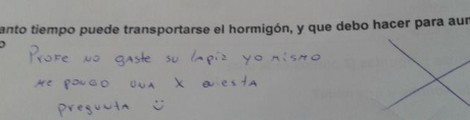 anto tiempo puede transportarse el hormigón, y que debo hacer para aum
o
PROFE NO GASTE SU LAPIZ YO MISMO
ME PONGO UNA X A ESTA
PREGUNTA